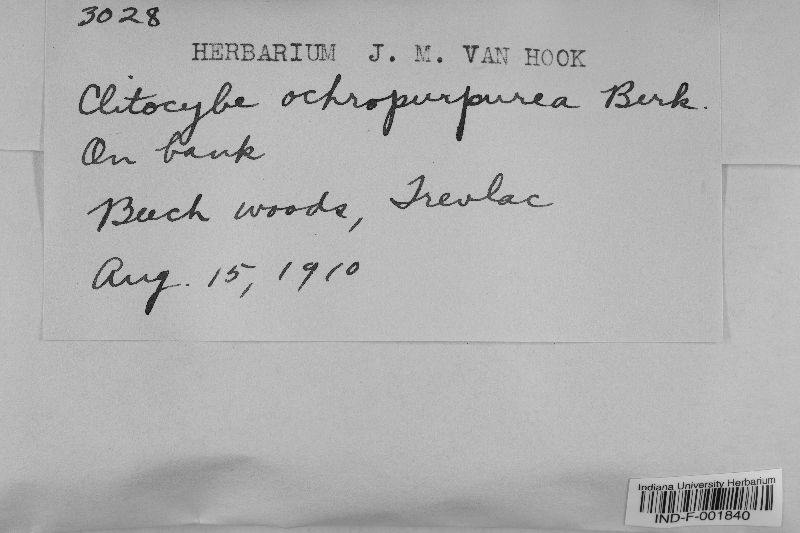 3028
HERBARIUM J. M. VAN HOOK
Clitocybe ochropurpurea Berk.
On bank
Beech woods, Trevlac
Aug. 15, 1910
Indiana University Herbarium
IND-F-001840